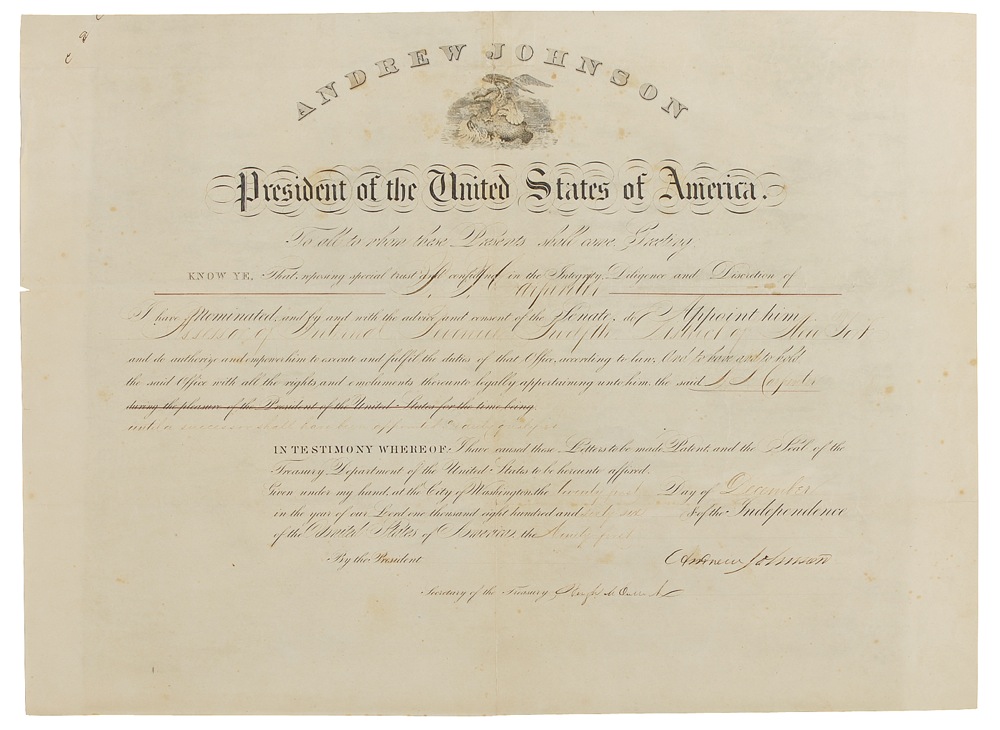 ANDREW JOHNSON
President of the United States of America.
To all to whom these Presents shall come Greeting
KNOW YE, That, reposing special trust and confidence in the Integrity, Diligence and Discretion of
Carpenter
I have Nominated, and by and with the advice and consent of the Senate, do Appoint him
Assessor of Internal Revenue Twelfth District of New York
and do authorize and empower him to execute and fulfil the duties of that Office, according to law, And to have and to hold
the said Office with all the rights and emoluments thereunto legally appertaining unto him, the said
during the pleasure of the President of the United States for the time being.
until a successor shall have been appointed and
IN TESTIMONY WHEREOF, I have caused these Letters to be made Patent, and the Seal of the
Treasury Department of the United States to be hereunto affixed.
Given under my hand, at the City of Washington, the twenty first Day of December
in the year of our Lord one thousand eight hundred and sixty six & of the Independence
of the United States of America, the Ninety first
By the President Andrew Johnson
Secretary of the Treasury Hugh McCulloch